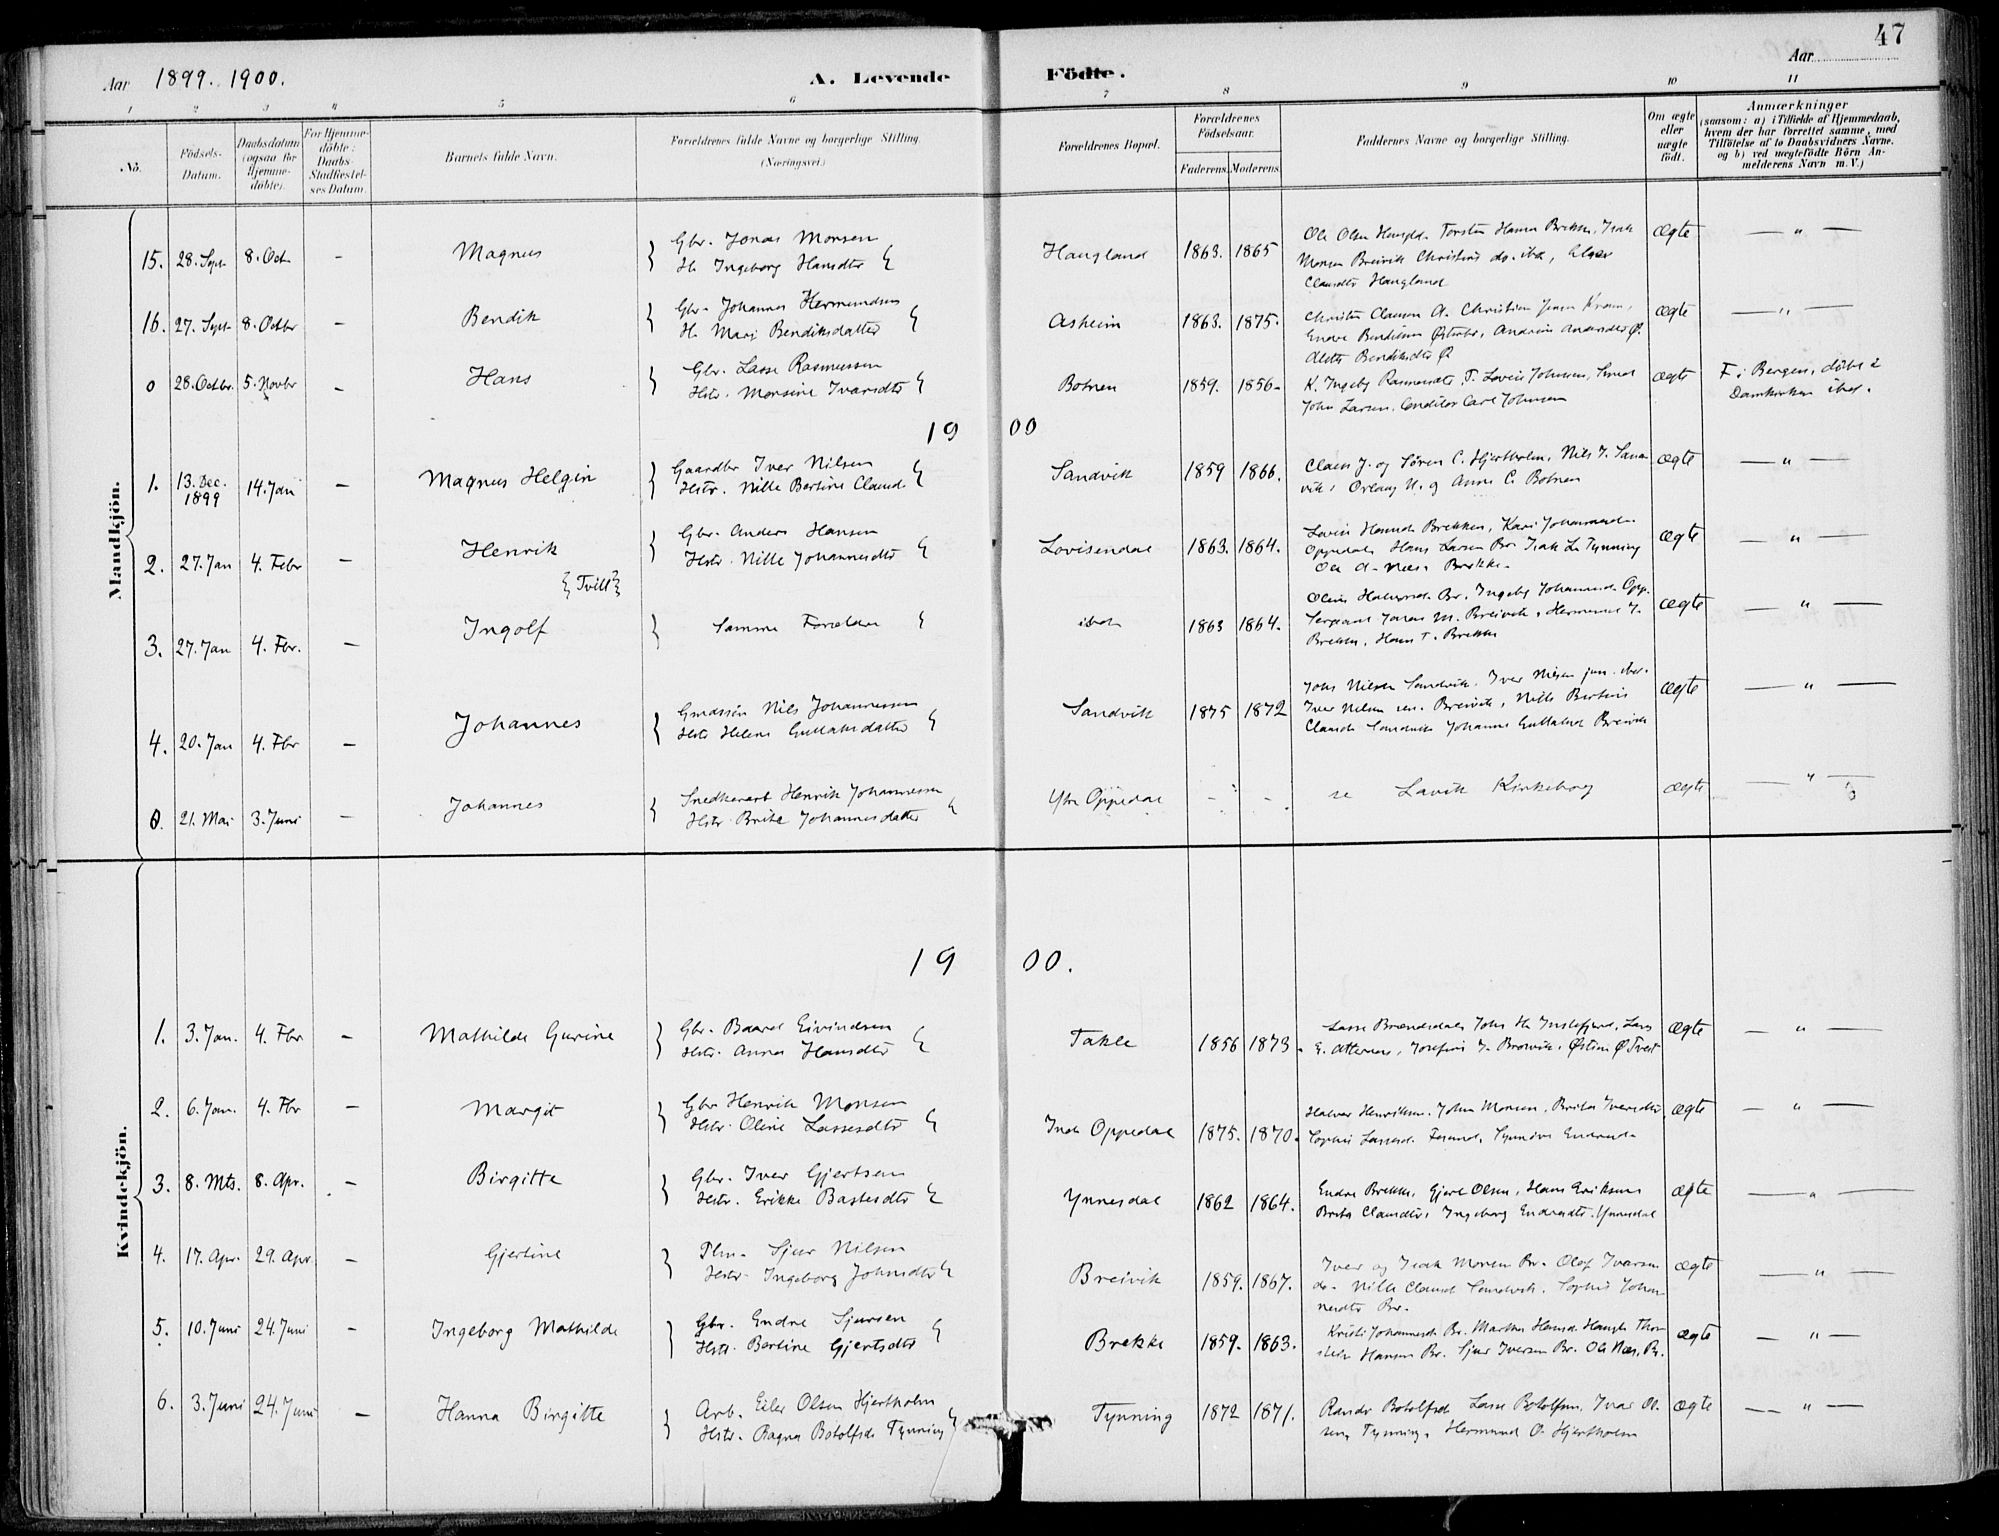 47
Aar 1899. 1900. A. Levende Födte. Aar
1 2 3 4 5 6 7 8 9 10 11
No. Födsels-Datum. Daabsdatum (ogsaa for Hjemme-döbte). For Hjemme-döbte: Daabs-Stadfæstel-ses Datum. Barnets fulde Navn. Forældrenes fulde Navne og borgerlige Stilling. (Næringsvei.) Forældrenes Bopæl. Forældrenes Födselsaar. Faderens. Moderens. Faddernes Navne og borgerlige Stilling. Om ægte eller uægte födt. Anmærkninger (saasom: a) i Tilfælde af Hjemmedaab, hvem der har forrettet samme, med Tilföielse af to Daabsvidners Navne, og b) ved uægtefödte Börn An-melderens Navn m. V.)
Mandkjön.
15. 28. Sept 8. Oct - Magnus Gbr. Jonas Monsen
H. Ingeborg Hansdtr Haugland 1863. 1865 Ole Olsen Haugld. Torsten Hansen Brekke, Isak
Monsen Breivik Christine do. ibd.,
Clausdtr Haugland ægte — " —
16. 27. Sept 8. Octbr - Bendik Gbr. Johannes Hermundsen
H. Mari Bendiksdatter Asheim 1863. 1875. Christen Clausen A. Christian Jensen
Endre Bendiksen Østerbø, Andrine Andersdtr Ø.
Bendiksdtr Ø ægte — " —
0 28. Octbr. 5. Novbr - Hans Gbr. Lasse Rasmussen
Hstr. Monsine Ivarsdtr Botnen 1859. 1856 K. Ingebg Rasmusdtr T. Lovise Johnsen, Smed
John Larsen, Conditor Carl Johnsen ægte F. i Bergen, døbt i
Domkirken ibd.
1900
1. 13. Dec. 1899 14. Jan - Magnus Helgin Gaardbr Iver Nilsen
Hstr. Nille Bertine Clausd. Sandvik 1859 1866. Claus J. og Søren C. Hjertholm, Nils J. Sand-
vik, N. og Anne C. Botnen ægte — " —
2. 27. Jan 4. Febr - Henrik Gbr. Anders Hansen
Hstr. Nille Johannesdtr Lovisendal 1863. 1864. Lovise Hansd. Brekken, Kari Johannesd.
Oppedal, Hans Larsen Br. Isak L. Tynning
Ole O. Næs, Brekke. ægte — " —
{Tvill}
3. 27. Jan 4. Fbr. - Ingolf Samme Forældre ibd. 1863 1864. Oline Br., Ingebg Johannesd. Opp.
Sergeant Jonas M. Breivik, Hermund J.
Brekke, Hans T. Brekke ægte — " —
4. 20. Jan 4. Fbr - Johannes Gmdssøn Nils Johannessen
Hstr Helene Gullaksdatter Sandvik 1875 1872 Johs Nilsen Sandvik, Iver Nilsen jun. ibd.
Iver Nilsen sen. Breivik, Nille Bertine
Clausd. Sandvik Johanne Gullaksd. Breivik ægte — " —
0. 21. Mai 3. Juni - Johannes Snedkerarb Henrik Johannessen
Hstr. Brite Johannesdatter Ytre Oppedal - - se Lavik Kirkebog ægte — " —
Kvindekjön.
1900.
1. 3. Jan. 4. Fbr - Mathilde Gurine Gbr. Baard Eivindsen
Hstr. Anna Hansdtr Takle 1856 1873. Lasse Brændsdal, Johs H. Instefjord, Lars
E. Josefine J. Breivik, Østine Ø. Tveit ægte — " —
2. 6. Jan. 4. Fbr - Margit Gbr Henrik Monsen
Hstr. Oline Lassesdtr Indr Oppedal 1875. 1870. Halvor Henriksen, John Monsen, Brita Iversdtr
Sophie Lassesd. Synnøve Endresd. ægte — " —
3. 8. Mts. 8. Apr. - Birgitte Gbr. Iver Gjertsen
Hstr. Erikke Bastesdtr Ynnesdal 1862 1864. Endre Brekke, Gjert Olsen, Hans Eriksen
Brita Clausdtr, Ingeborg Endresdtr. Ynnesdal ægte — " —
4. 17. Apr. 29. Apr. - Gjertine Plm. Sjur Nilsen
Hstr. Ingeborg Johnsdtr Breivik 1859. 1867. Iver og Isak Monsen Br. Olaf Ivarsen
do. Nille Clausd Sandvik. Sophie Johan-
nesdtr Br. ægte — " —
5. 10. Juni 24. Juni - Ingeborg Mathilde Gbr. Endre Sjursen
Hstr. Bertine Gjertsdtr Brekke 1859. 1863. Kristi Johannesd. Br. Marthe Hansd. Haugld. Thor-
stein Hansen Br. Sjur Iversen Br. Ole Næs, Br. ægte — " —
6. 3. Juni 24. Juni - Hanna Birgitte Arb. Eiler Olsen Hjertholm
Hstr. Ragna Botolfsd. Tynning Tynning 1872 1871. Randi Botolfsd Lasse Botolfsen, Ivar Ol-
sen, Tynning, Hermund O. Hjertholm ægte — " —